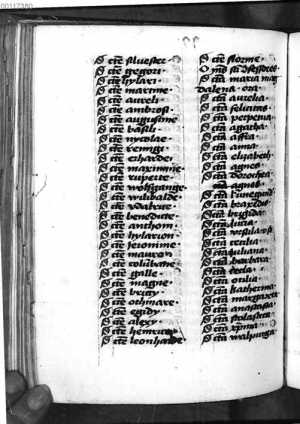 00117380
S cte siluester
S cte gregori
S cte hylari
S cte martine
S cte aureli
S cte ambrosi
S cte augustine
S cte basili
S cte nycolae
S cte remigi
S cte erharde
S cte maximine
S cte ruperte
S cte wolfgange
S cte wilibalde
S cte vdalrice
S cte benedicte
S cte anthoni
S cte hylarion
S cte jeronime
S cte maure
S cte columbane
S cte galle
S cte magne
S cte
S cte othmare
S cte egidy
S cte alexy
S cte heinrice
S cte leonharde
S cte
Oms sci
S cta maria mag
dalena ora
S cta aurelia
S cta felicitas
S cta perpetua
S cta agatha
S cta affra
S cta anna
S cta elizabeth
S cta agnes
S cta dorothea
S cta agnes
S cta kunegund
S cta
S cta brigida
S cta lucia
S cta vrsula
S cta cecilia
S cta juliana
S cta barbara
S cta tecla
S cta otilia
S cta katherina
S cta margareta
S cta anastasia
S cta scolastica
S cta xpina
S cta walpurga